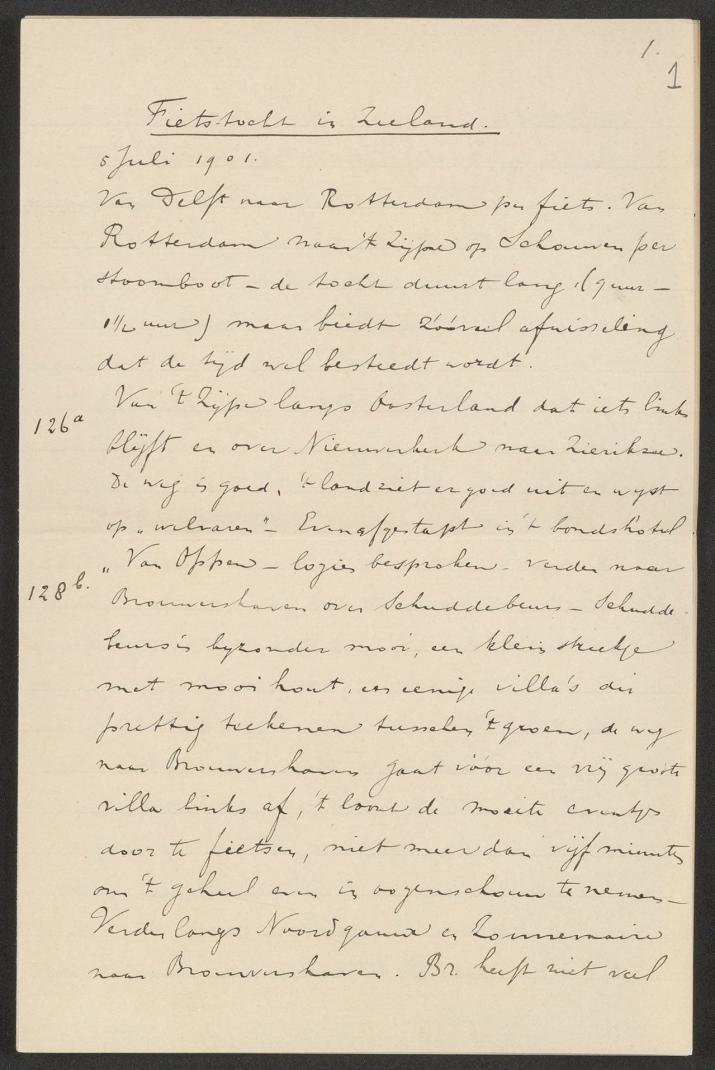 1.
1
Fietstocht in Zeeland.
5 Juli 1901.
Van Delft naar Rotterdam per fiets. Van
Rotterdam naar 't Zijpe op Schouwen per
stoomboot – de tocht duurt lang (9 uur –
1½ uur) maar biedt zóóveel afwisseling
dat de tijd wel besteedt wordt.
Van 't Zijpe langs Oosterland dat iets links
126a
blijft en over Nieuwerkerk naar Zierikzee.
De weg is goed, 't land ziet er goed uit en wijst
op „welvaren" – Even afgestapt in 't bondshotel
„Van Oppen – logies besproken – verder naar
128b.
Brouwershaven over Schuddebeurs – Schudde-
beurs is byzonder mooi, een klein streekje
met mooi hout, en eenige villa's die
prettig teekenen tusschen 't groen, de weg
naar Brouwershaven gaat vóór een vrij groote
villa links af, 't loont de moeite eventjes
door te fietsen, niet meer dan vijf minuten
om 't geheel even in oogenschouw te nemen –
Verder langs Noordgouwe en Zonnemaire
naar Brouwershaven. Br. heeft niet veel